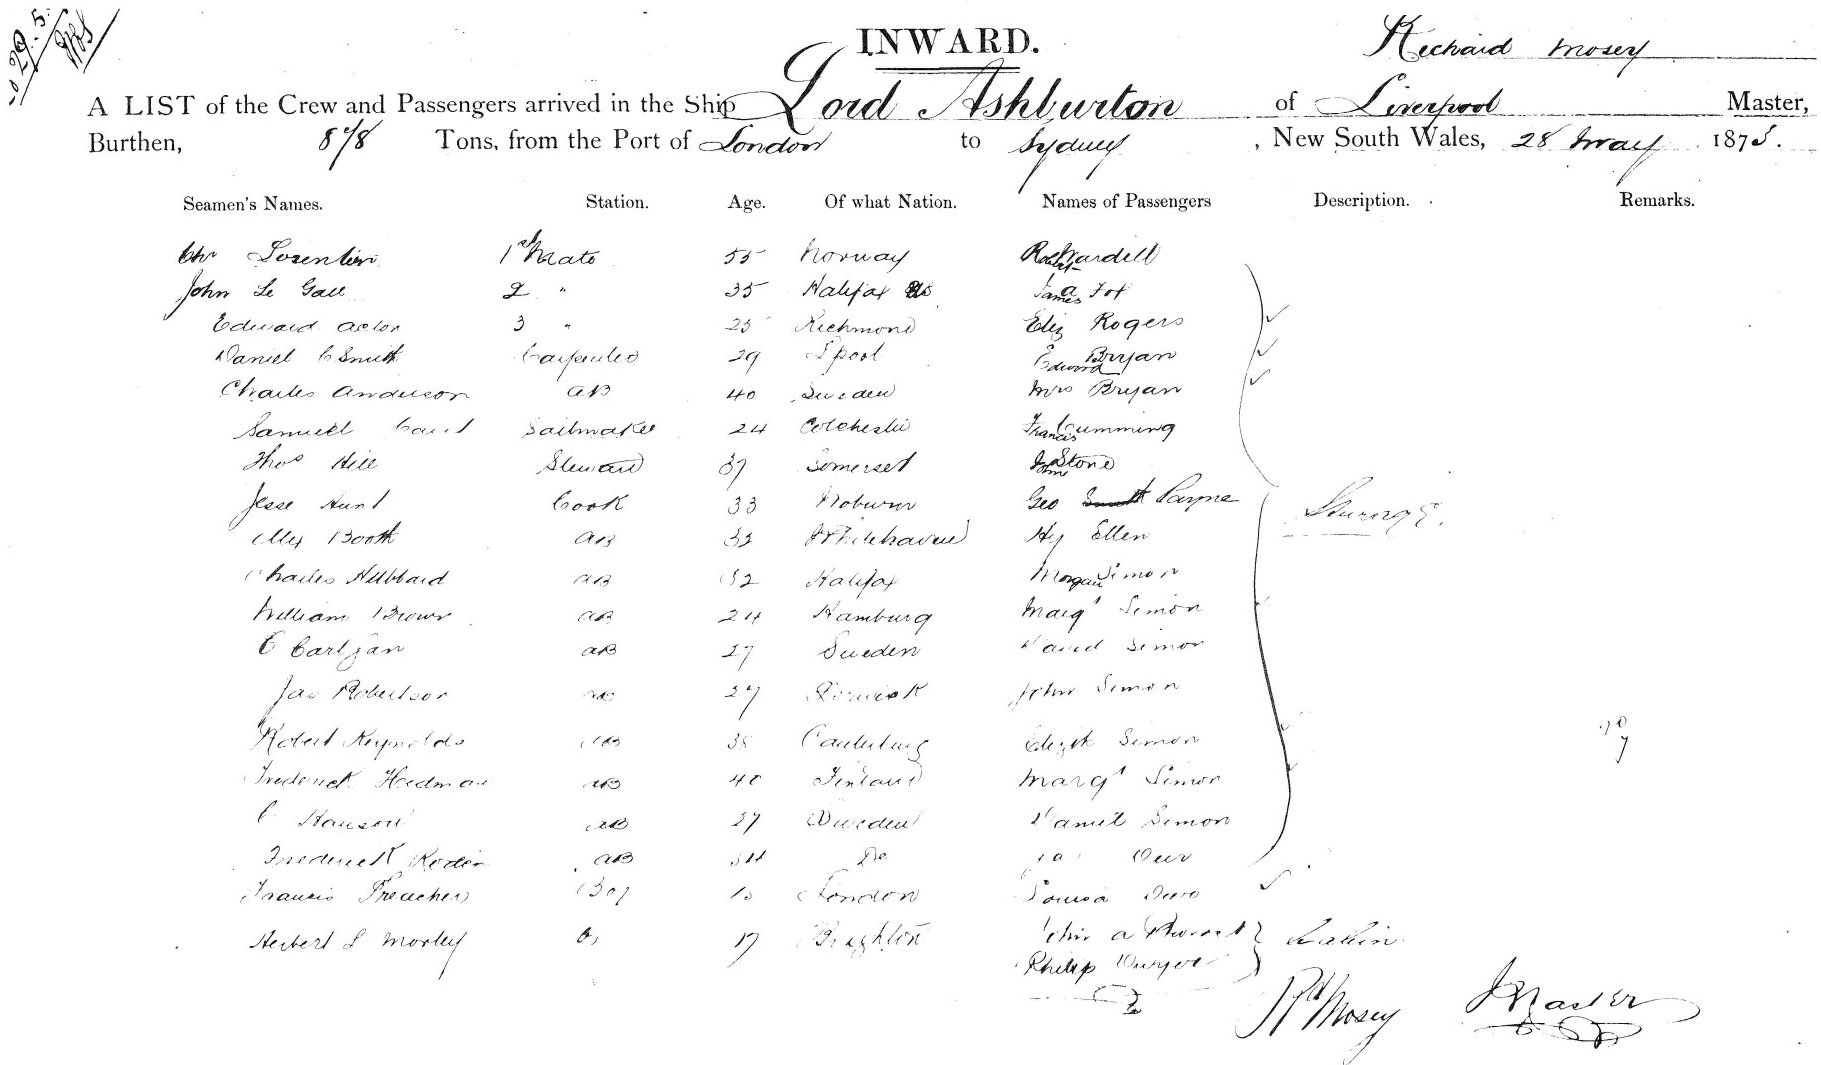 29.5
INWARD.
Richard Mosey
A LIST of the Crew and Passengers arrived in the Ship Lord Ashburton of Liverpool Master,
Burthen, Tons, from the Port of London to Sydney, New South Wales, 28 May 1875.
Seamen's Names. Station. Age. Of what Nation. Names of Passengers Description. Remarks.
1st Mate 55 Norway Robert Wardell
John Le Gall 2 " 35 Halifax NS James a Fox
Edward Acton 3 " 25 Richmond Eliz Rogers
Daniel C Smith Carpenter 29 L'pool Edward Bryan
Charles Anderson AB 40 Sweden Mrs Bryan
Samuel Sailmaker 24 Colchester Francis Cumming
Thos Hill Steward 37 Somerset John Stone
Jesse Hunt Cook 33 Woburn Geo Smith Payne
Alex Booth AB 32 Whitehaven Hy Ellen
Charles Hubbard AB 32 Halifax Morgan Simon
William Brown AB 24 Hamburg Margt Simon
C Carljan AB 27 Sweden David Simon
Jas Robertson AB 27 John Simon
Robert Reynolds AB 38 Canterbury Elizth Simon
Frederick Hedman AB 40 Finland Margt Simon
C Hanson AB 27 Sweden Daniel Simon
Frederick AB 34 Do
Francis Preacher Boy London Louisa
Herbert S Morley 17 Brighton John a
Philip
Rd Mosey Master